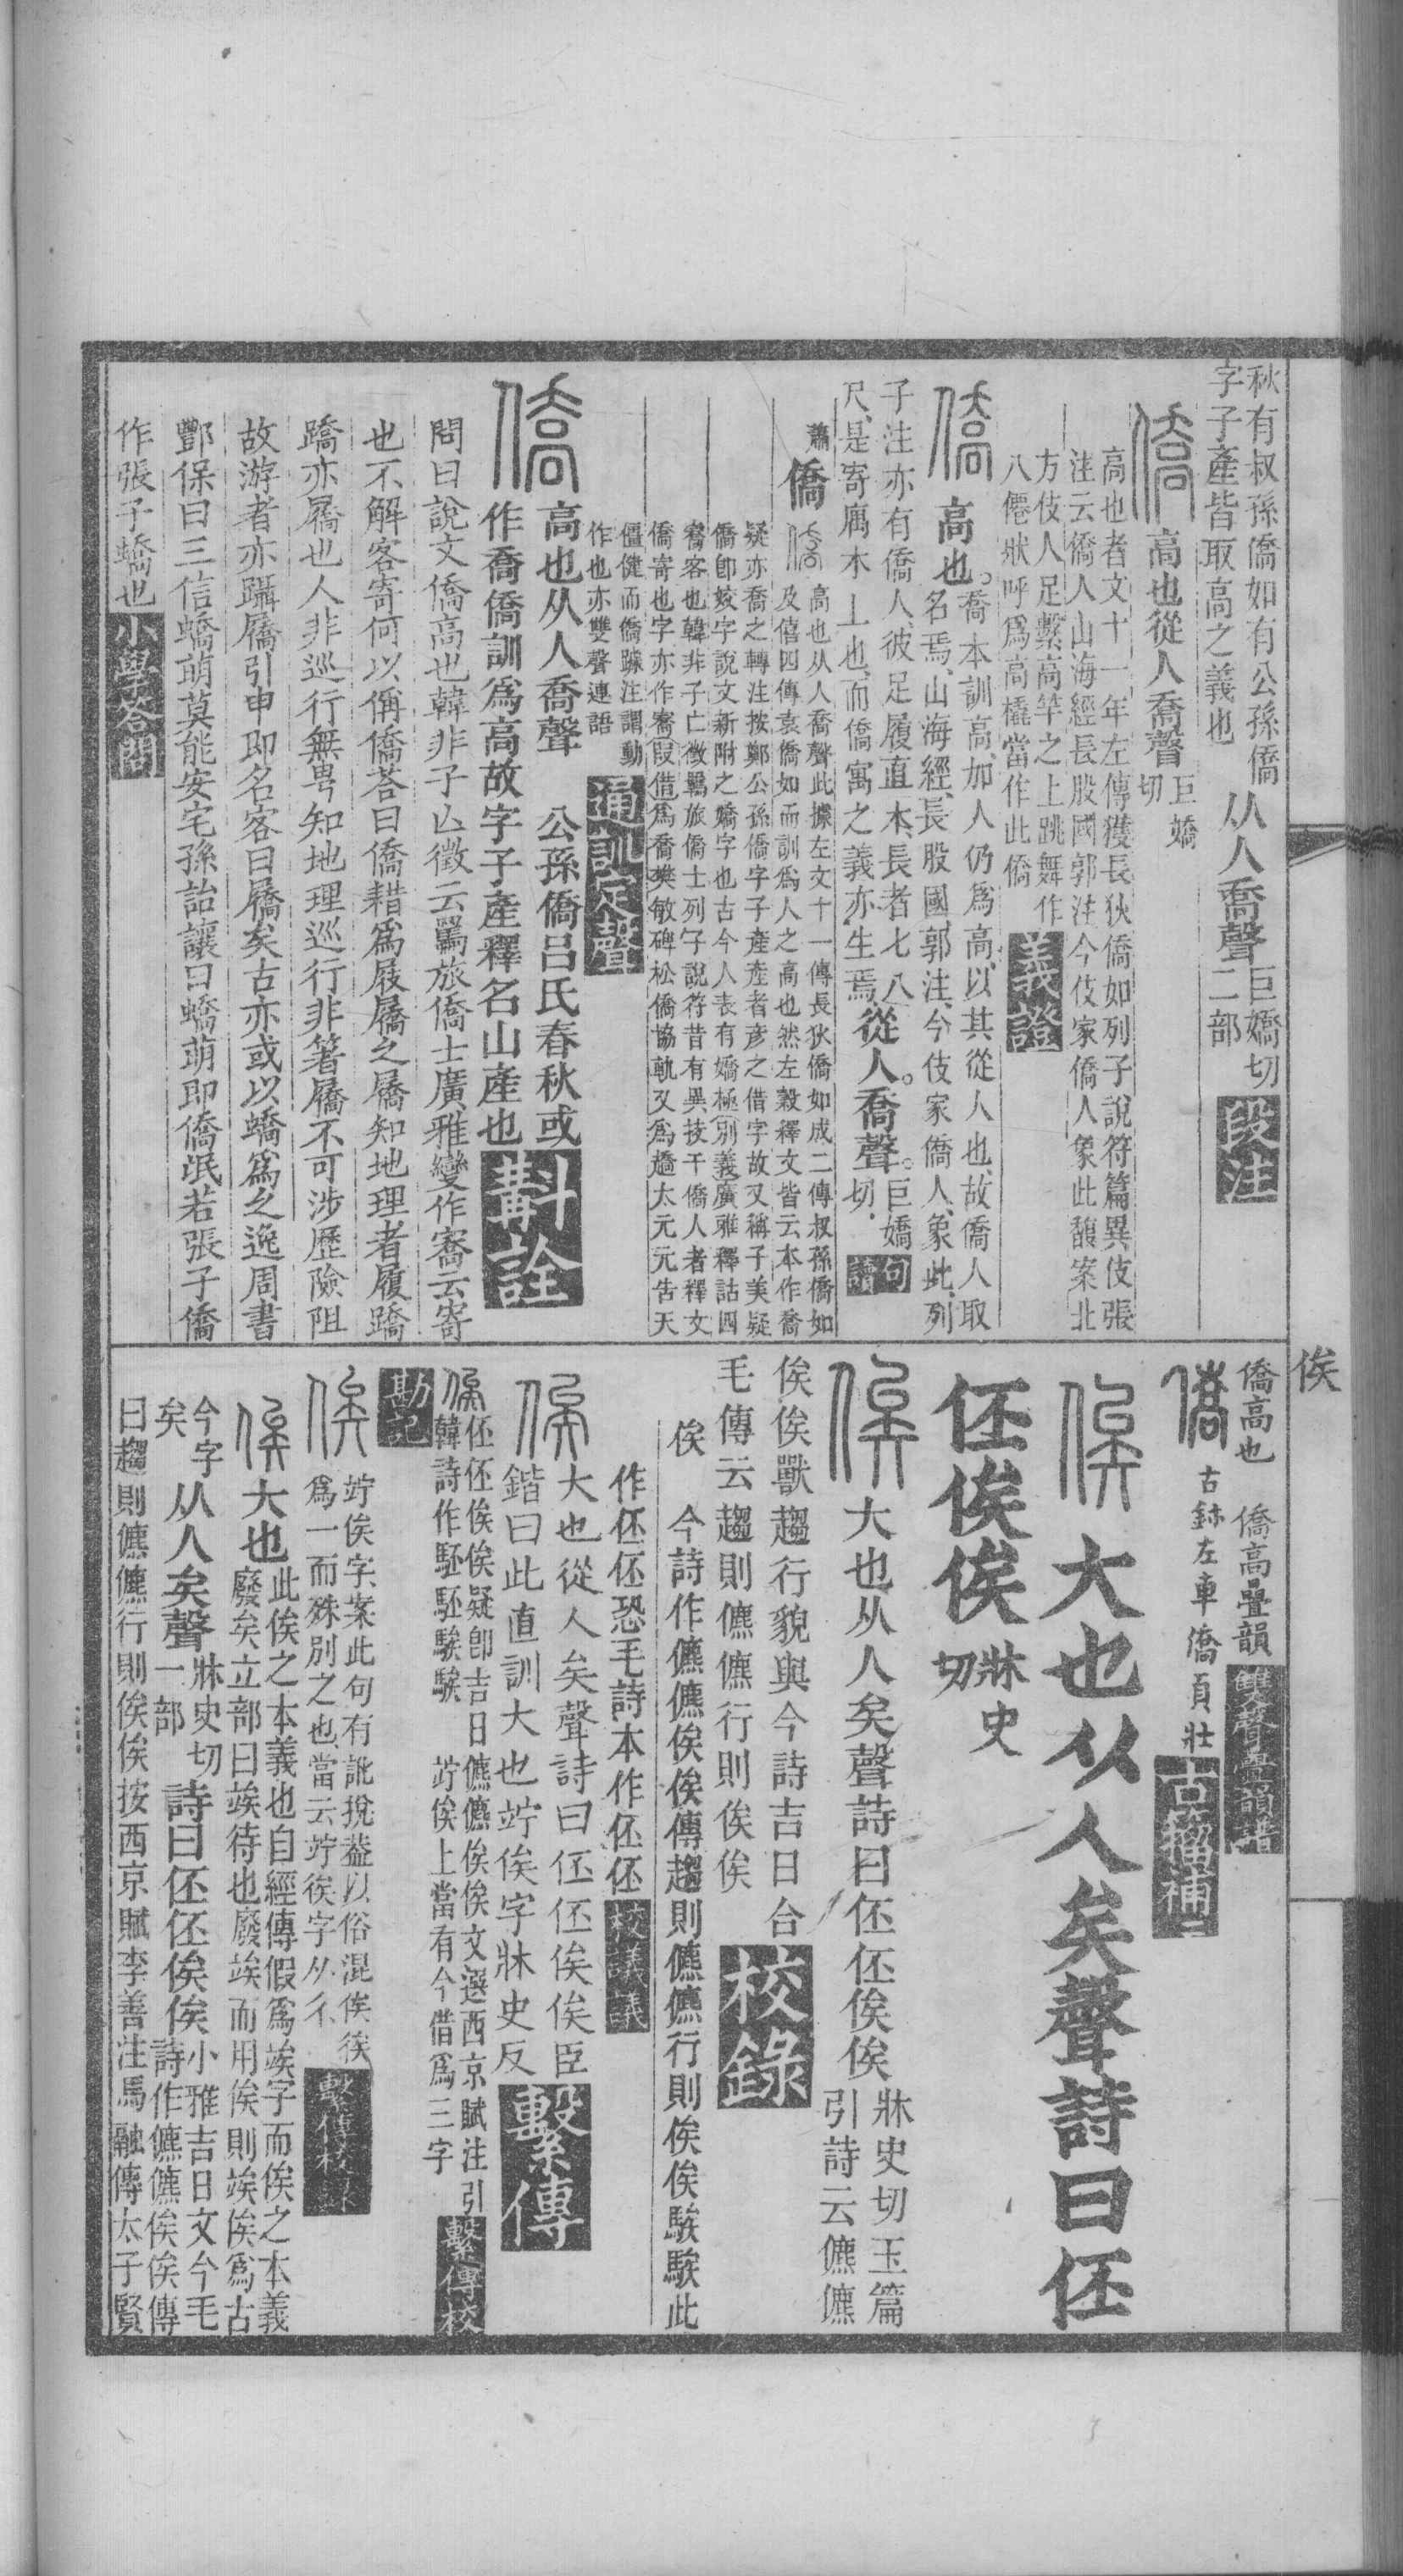 俟
秋有叔孫僑如有公孫僑
字子產皆取高之義也
从人喬聲
巨嬌切
二部
段注
高也從人喬聲
巨嬌
切
高也者文十一年左傳獲長狄僑如列子說符篇異伎張
注云僑人山海經長股國郭注今伎家僑人象此馥案北
方伎人足繫高竿之上跳舞作
八僊狀呼爲高橇當作此僑
義證
高也。
喬本訓高、加人仍爲高、以其從人也、故僑人取
名焉、山海經、長股國、郭注、今伎家僑人、象此、列
子注亦有僑人、彼足履直木、長者七八
尺、是寄寓木上也、而僑寓之義亦生焉、
從人。喬聲。
巨嬌
切.
句讀
蕭
僑
高也从人喬聲此據左文十一傳長狄僑如成二傳叔孫僑如
及僖四傳袁僑如而訓爲人之高也然左穀釋文皆云本作喬
疑亦喬之轉注按鄭公孫僑字子產產者彥之借字故又稱子美疑
僑卽姣字說文新附之嬌字也古今人表有嬌極別義廣雅釋詁四
寄客也韓非子亡徵羈旅僑士列子說符昔有異技干僑人者釋文
僑寄也字亦作寄叚借爲喬樊敏碑松僑協軌又爲趫太元元告天
僵健而僑躁注謂動
作也亦雙聲連語
通訓定聲
高也从人喬聲
公孫僑呂氏春秋或
作喬僑訓爲高故字子產釋名山產也
斠詮
問曰說文僑高也韓非子亾徵云羈旅僑士廣雅變作寄云寄
也不解客寄何以偁僑荅曰僑耤爲屐屩之屩知地理者履蹻
蹻亦屩也人非巡行無㠯知地理巡行非箸屩不可涉歷險阻
故游者亦躡屩引申即名客曰屩矣古亦或以蟜爲之逸周書
酆保曰三信蟜萌莫能安宅孫詒讓曰蟜萌即僑氓若張子僑
作張子蟜也
小學答問
僑高也　僑高疊韻
雙聲疊韻譜
古鉨左車僑 肖壯
古籀補
大也从人矣聲詩曰伾
伾俟俟
牀史
切
大也从人矣聲詩曰伾伾俟俟
牀史切玉篇
引詩云儦儦
俟俟獸趨行貌與今詩吉日合
毛傳云趨則儦儦行則俟俟
校錄
俟
今詩作儦儦俟俟傳趨則儦儦行則俟俟騃騃此
作伾伾恐毛詩本作伾伾
校議議
大也從人矣聲詩曰伾伾俟俟臣
鍇曰此直訓大也竚俟字牀史反
繫傳
伾伾俟俟疑卽吉日儦儦俟俟文選西京賦注引
韓詩作駓駓騃騃　竚俟上當有今借爲三字
繫傳校
勘記
竚俟字、案此句有訛挩葢以俗混俟㣥
爲一而殊別之也、當云竚㣥字从彳、
繫傳校錄
大也
此俟之本義也自經傳假爲竢字而俟之本義
廢矣立部曰竢待也廢竢而用俟則竢俟爲古
今字
矣
从人矣聲
牀史切
一部
詩曰伾伾俟俟
小雅吉日文今毛
詩作儦儦俟俟傳
曰趨則儦儦行則俟俟按西京賦李善注馬融傳太子賢